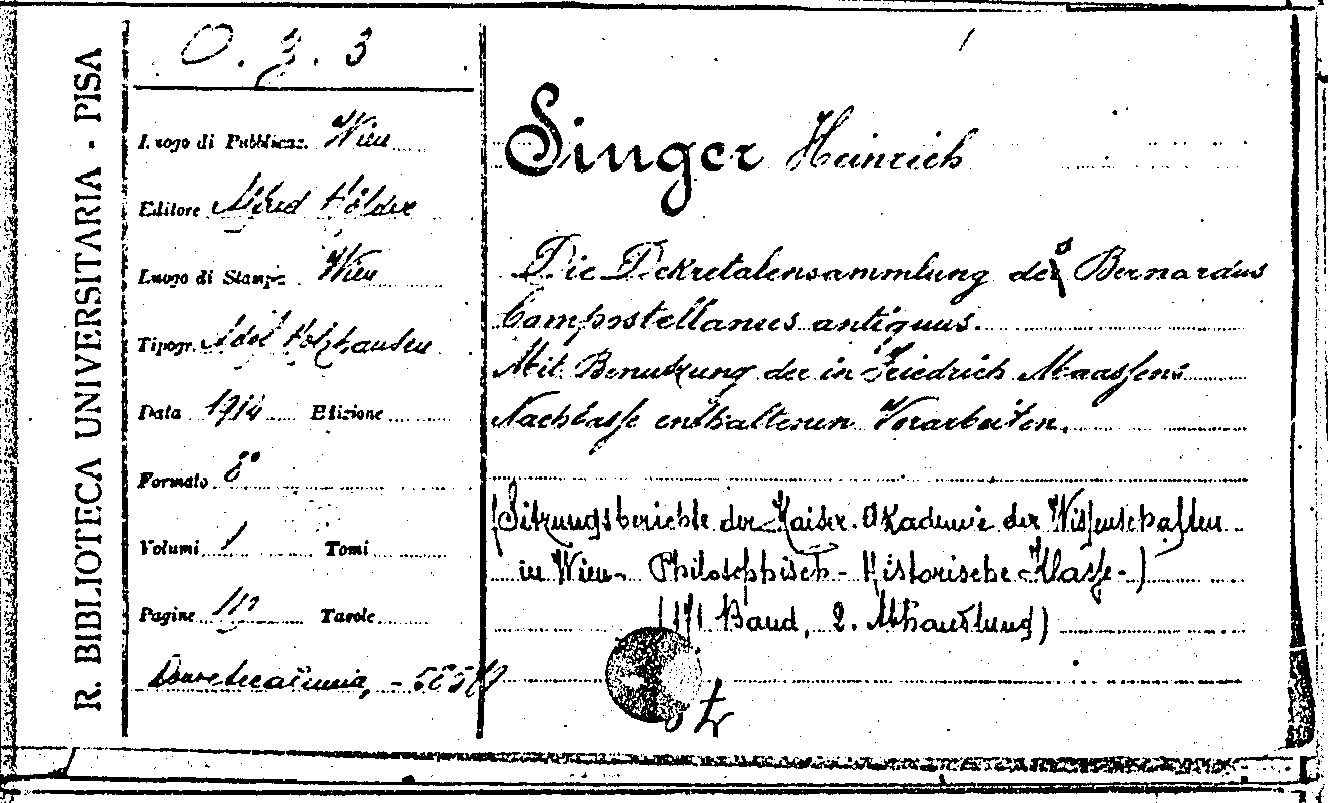 R. BIBLIOTECA UNIVERSITARIA - PISA
O. 3. 3
Luogo di Pubblicaz. Wien
Editore Alfred Hölder
Luogo di Stampa Wien
Tipogr. Adolf Holzhausen
Data 1914 Edizione
Formato 8°
Volumi 1 Tomi
Pagine Tavole
Singer Heinrich
Die Dekretalensammlung des Bernardus
Compostellanus antiquus.
Mit Benutzung der in Friedrich Maassens
Nachlasse enthaltenen Vorarbeiten.
(Sitzungsberichte der Kaiser. Akademie der Wissenschaften
in Wien - Philosophisch - Historische Klasse -)
(171 Band, 2. Abhandlung)